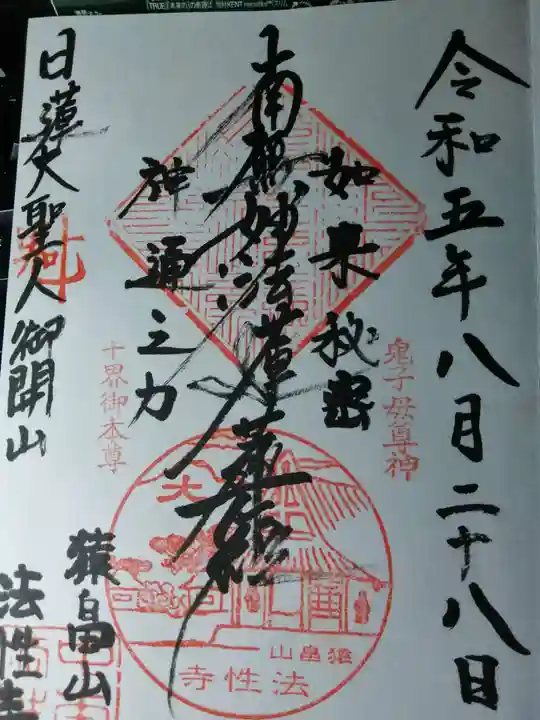 令和五年八月二十八日
如来秘密
鬼子母尊神
南無妙法蓮華経
神通之力
十界御本尊
日蓮大聖人御開山
猿畠山
法性寺
大
猿畠山
法性寺